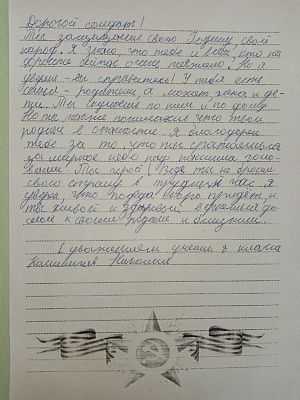 Дорогой солдат!
Ты защищаешь свою Родину, свой
народ. Я знаю, что тебе и всем, кто на
фронте сейчас очень тяжело. Но я
думаю - вы справитесь! У тебя есть
семья - родители, а может жена и де-
ти. Ты скучаешь по ним и по дому
Но ты должен понимать что твои
родные в опасности. Я благодарен
тебе за то, что ты
за мирное небо над нашими голо-
вами. Ты герой! Ведь ты не бросил
свою страну в трудный час. Я
уверен, что победа скоро придет, и
ты живой и здоровый вернешься до
мой к своим родным и близким.
С уважением ученик 7 класса